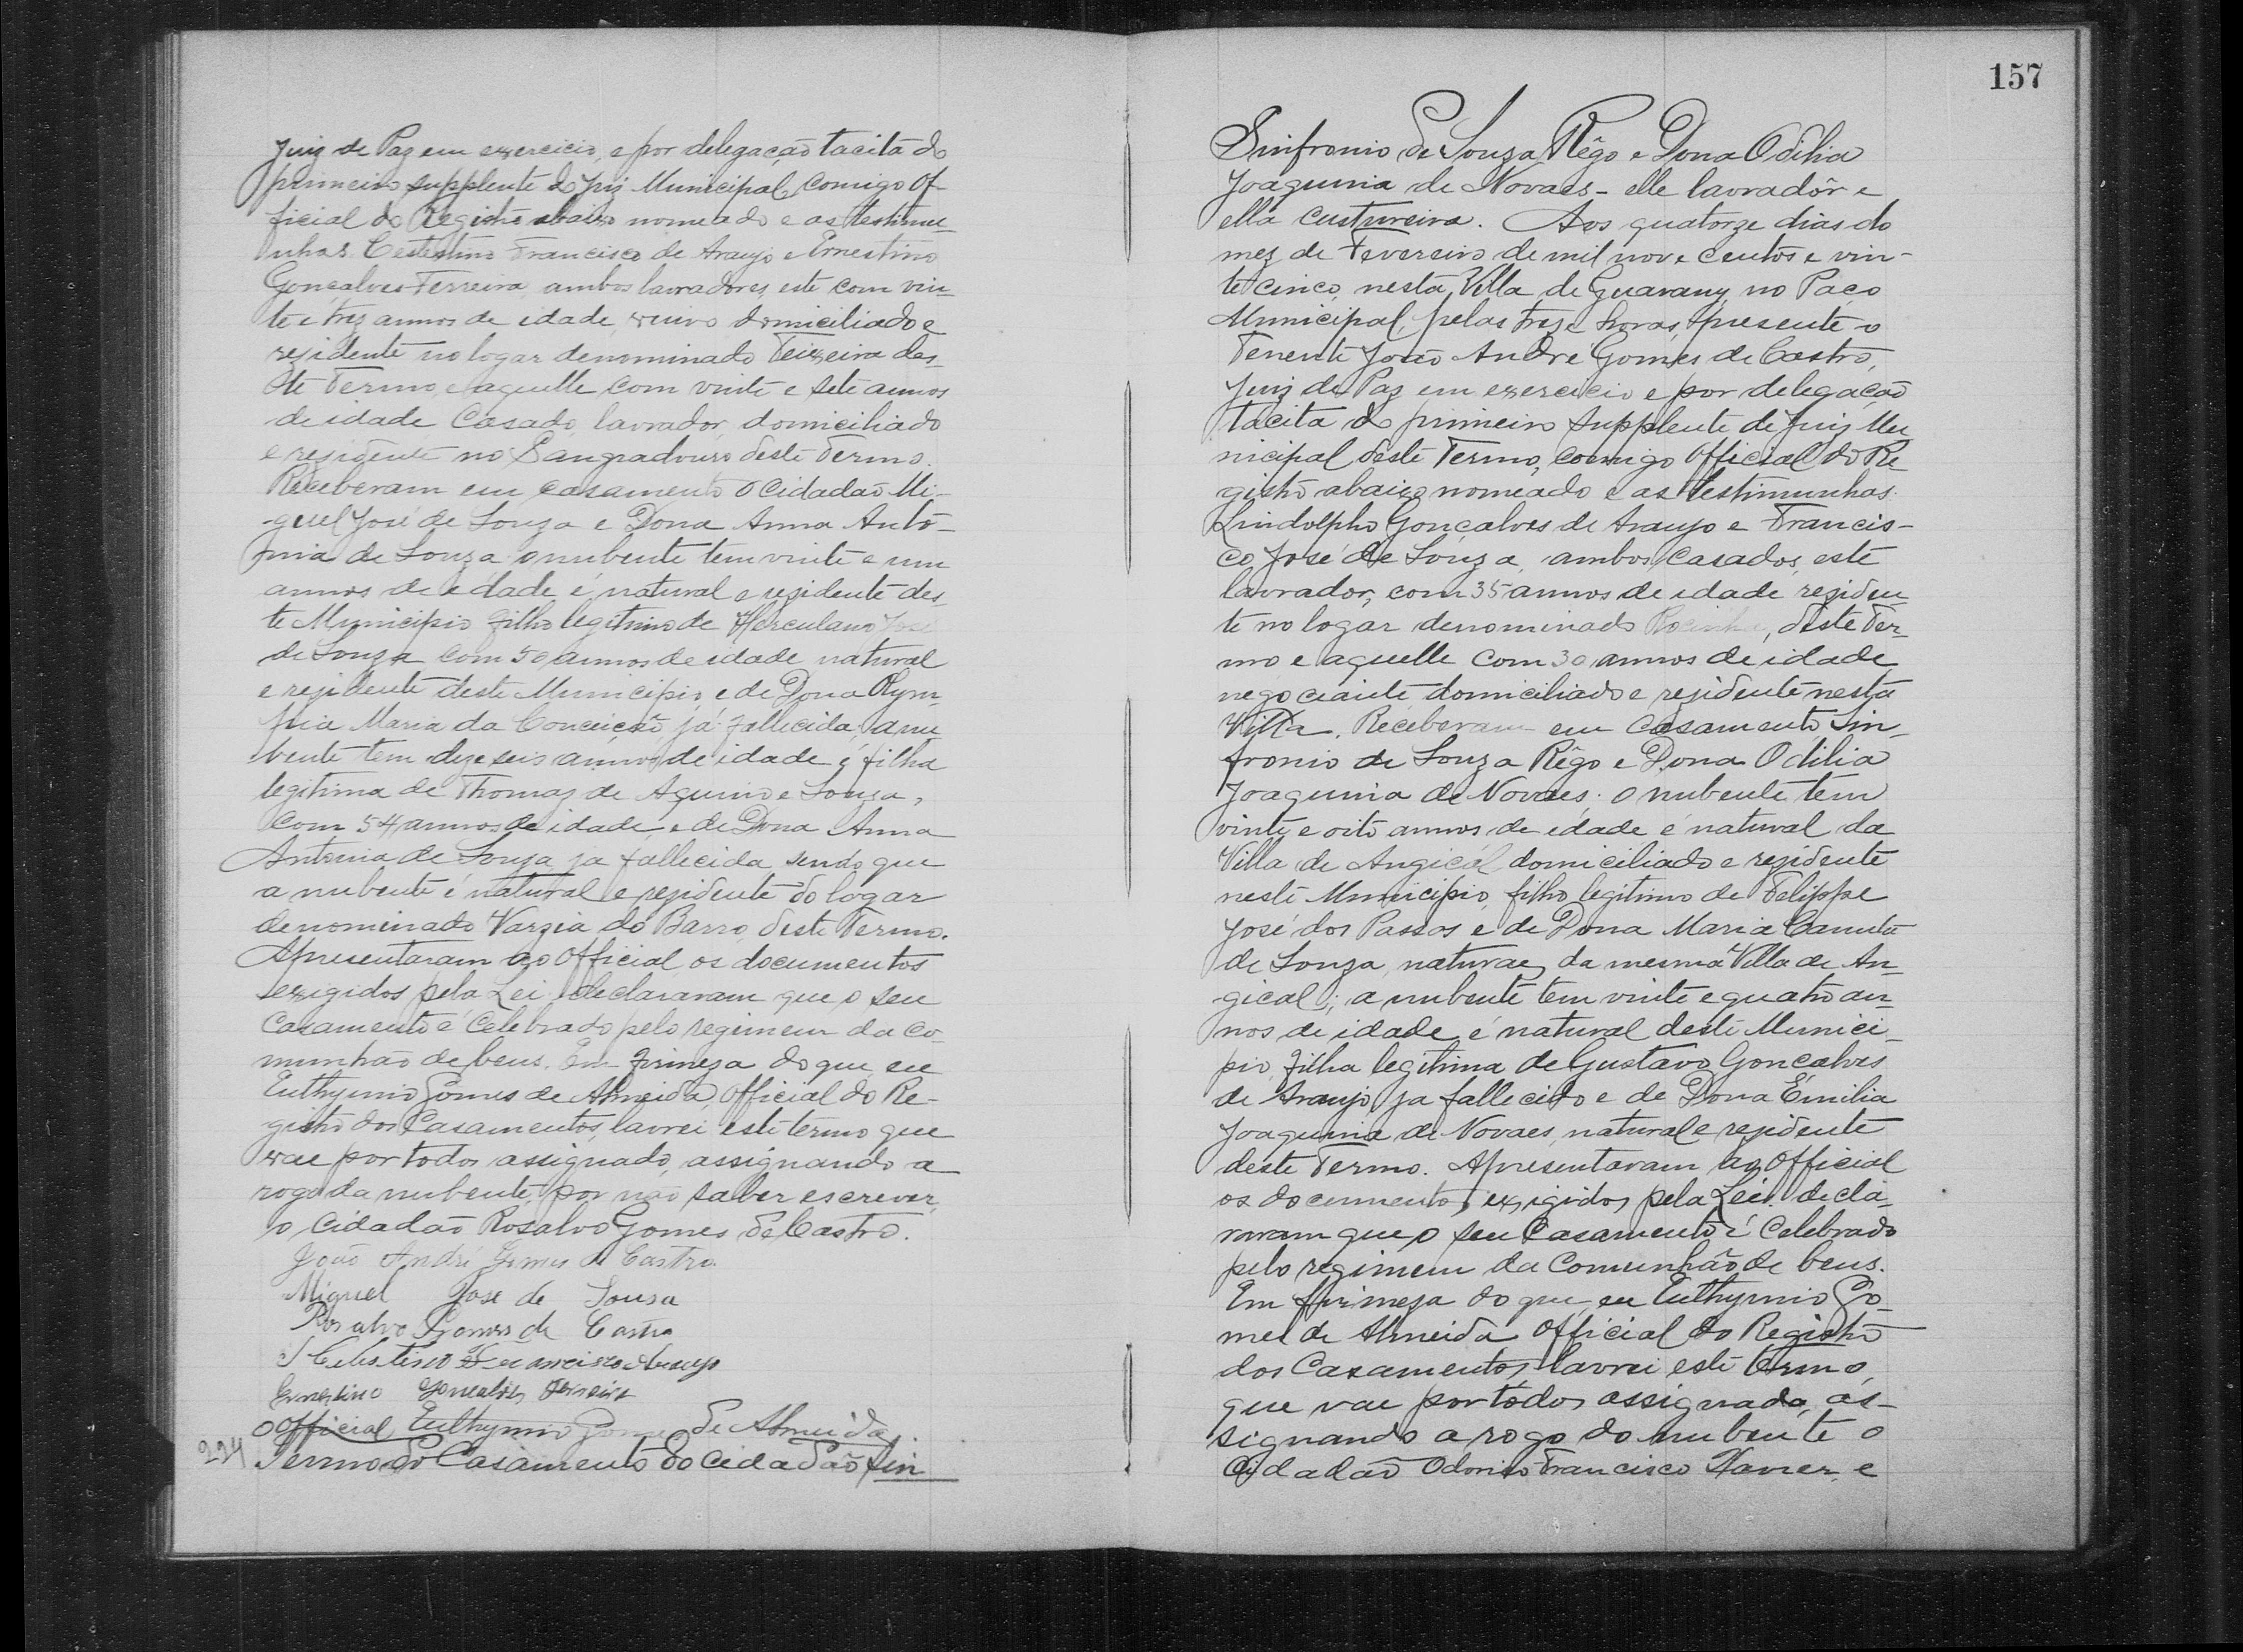 Juiz de Paz em exercicio, e por delegação tacita do
primeiro supplente do Juiz Municipal, comigo Of-
ficial do Registro abaixo nomeado e as testimu-
nhas Celestino Francisco de Araujo e Ernestino
Gonçalves Ferreira, ambos lavradores, este com vin-
te e trez annos de idade, viuvo domiciliado e
rezidente no logar denominado Teixeira des-
te Termo, e aquelle com vinte e sete annos
de idade Casado, lavrador, domiciliado
e rezidente no Sangradouro deste Termo.
Receberam em casamento o Cidadão Mi-
guel José de Souza e Dona Anna Anto-
nia de Souza, o nubente tem vinte e um
annos de edade, é natural e rezidente des-
te Municipio filho legitimo de Herculano José
de Souza com 50 annos de idade, natural
e rezidente deste Municipio, e de Dona Olym-
pia Maria da Conceição, já fallecida, a nu
bente tem dezeseis annos de idade, é filha
legitima de Thomaz de Aquino e Souza,
com 54 annos de idade, e de Dona Anna
Antonia de Souza já fallecida, sendo que
a nubente é natural e rezidente do logar
denominado Varzia do Barro, deste Termo.
Apresentaram ao Official os documentos
exigidos pela Lei, declararam que o seu
Casamento é Celebrado pelo regimem da Co-
munhão de bens. Em firmeza do que, eu
Euthymio Gomes de Almeida, Official do Re-
gistro dos Casamentos, lavrei este termo que
vae por todos assignado, assignando a
rogo da nubente, por não saber escrever,
o Cidadão Rosalvo Gomes de Castro.
João André Gomes de Castro
Miguel José de Sousa
Rosalvo Gomes de Castro
Celestino Francisco Araujo
Ernestino Gonçalves Ferreira
O Official, Euthymio Gomes de Almeida.
224 Termo do Casamento do Cidadão Sin
157
Sinfronio de Souza Rêgo e Dona Odilia
Joaquina de Novaes - elle lavradôr e
ella custureira. Aos quatorze dias do
mez de Fevereiro de mil nove centos e vin-
te cinco, nesta Villa de Guarany, no Paço
Municipal, pelas treze horas, presente o
Tenente João André Gomes de Castro,
Juiz de Paz em exercicio e por delegação
tacita do primeiro supplente de Juiz Mu
nicipal deste Termo, comigo Official do Re
gistro abaixo nomeado e as testimunhas
Lindolpho Gonçalves de Araujo e Francis-
co José de Souza, ambos Casados, este
lavrador, com 35 annos de idade reziden
te no logar denominado Rocinha, deste Ter-
mo e aquelle com 30 annos de idade,
negociante domiciliado e rezidente nesta
Villa. Receberam em Casamento, Sin-
fronio de Souza Rêgo e Dona Odilia
Joaquina de Novaes; o nubente tem
vinte e oito annos de edade é natural da
Villa de Angical domiciliado e rezidente
neste Municipio, filho legitimo de Felippe
José dos Passos e de Dona Maria Canuta
de Souza, naturaes da mesma Villa de An-
gical; a nubente tem vinte e quatro an-
nos de idade, é natural deste Munici-
pio, filha legitima de Gustavo Gonçalves
de Araujo, ja fallecido e de Dona Emilia
Joaquina de Novaes, natural e rezidente
deste Termo. Apresentaram ao Official
os documentos exigidos pela Lei. decla-
raram que o seu Casamento é Celebrado
pelo regimem da Comunhão de bens.
Em firmeza do que, eu Euthymio Go-
mes de Almeida Official do Registro
dos Casamentos, lavrei este termo,
que vae por todos assignado, as-
signando a rogo do nubente o
Cidadão Odorico Francisco Xavier, e